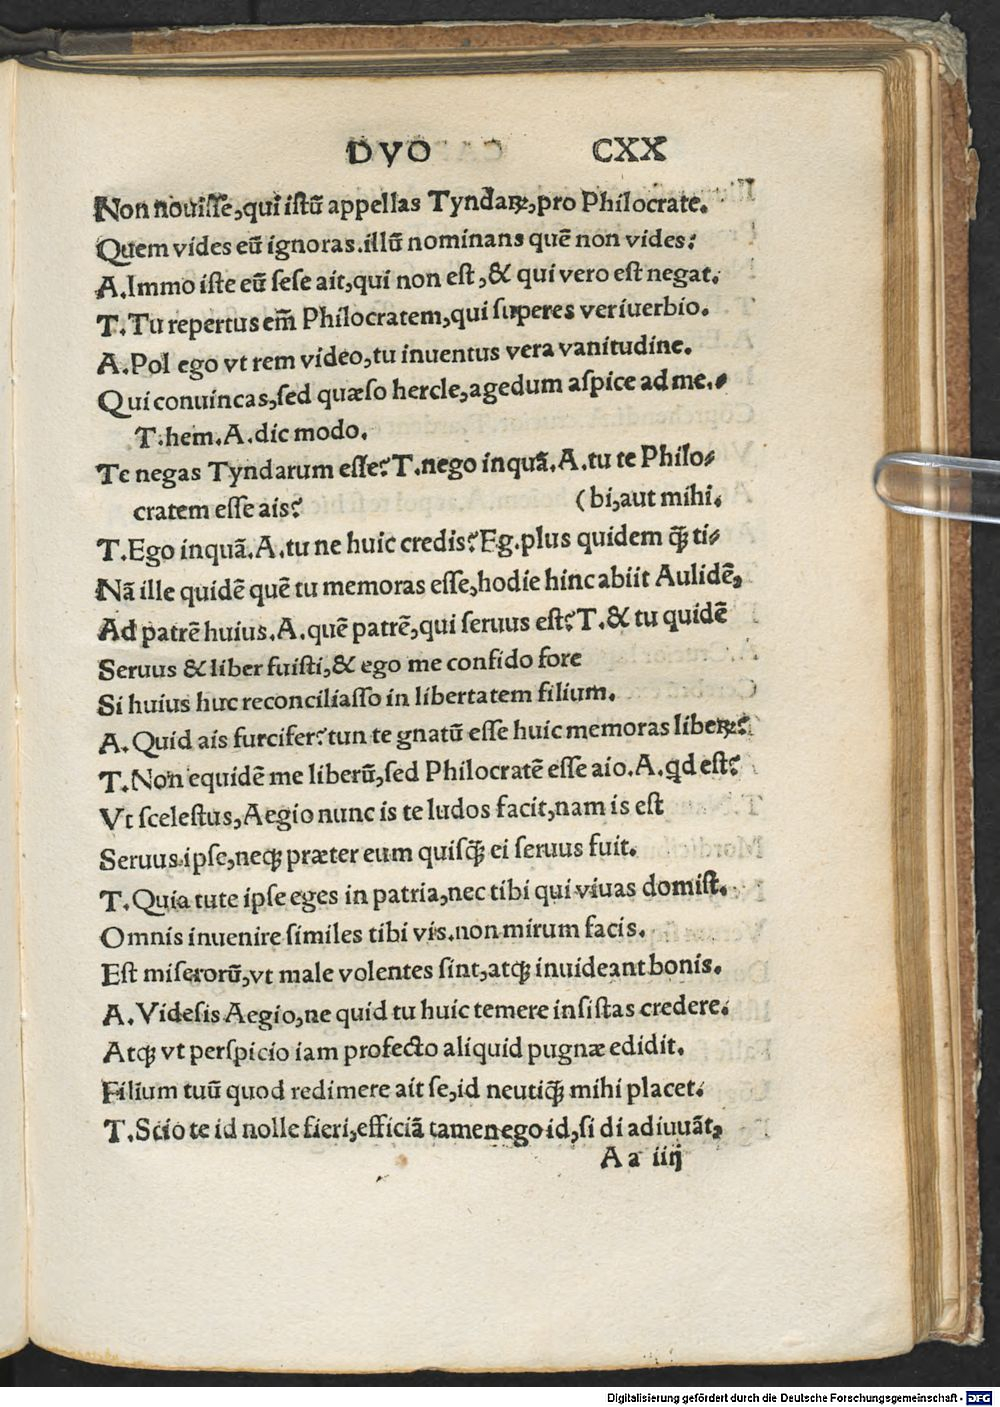 DVO CXX
Non nouisse,qui istũ appellas Tyndaꝝ,pro Philocrate.
Quem vides eũ ignoras.illũ nominans quẽ non vides:
A.Immo iste eũ sese ait,qui non est,& qui vero est negat.
T.Tu repertus em̃ Philocratem,qui superes veriuerbio.
A.Pol ego vt rem video,tu inuentus vera vanitudine.
Qui conuincas,sed quæso hercle,agedum aspice ad me.
T.hem.A.dic modo.
Te negas Tyndarum esse?T.nego inquã.A.tu te Philo-
cratem esse ais? (bi,aut mihi.
T.Ego inquã.A.tu ne huic credis?Eg.plus quidem q̃ ti-
Nã ille quidẽ quẽ tu memoras esse,hodie hinc abiit Aulidẽ,
Ad patrẽ huius.A.quẽ patrẽ,qui seruus est?T.& tu quidẽ
Seruus & liber fuisti,& ego me confido fore
Si huius huc reconciliasso in libertatem filium.
A.Quid ais furcifer?tun te gnatũ esse huic memoras libeꝝ?
T.Non equidẽ me liberũ,sed Philocratẽ esse aio.A.qd est?
Vt scelestus,Aegio nunc is te ludos facit,nam is est
Seruus ipse,neqꝫ præter eum quisq̃ ei seruus fuit.
T.Quia tute ipse eges in patria,nec tibi qui viuas domist.
Omnis inuenire similes tibi vis.non mirum facis.
Est miserorũ,vt male volentes sint,atqꝫ inuideant bonis.
A.Videsis Aegio,ne quid tu huic temere insistas credere:
Atqꝫ vt perspicio iam profecto aliquid pugnæ edidit.
Filium tuũ quod redimere ait se,id neutiq̃ mihi placet:
T.Scio te id nolle fieri,efficiã tamen ego id,si di adiuuãt,
A a iiij
Digitalisierung gefördert durch die Deutsche Forschungsgemeinschaft - DFG